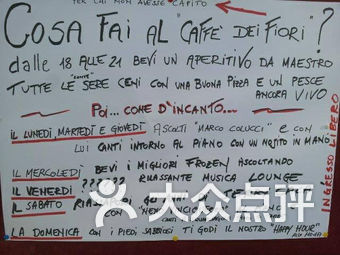 PER CHI NON AVESSE CAPITO
COSA FAI AL "CAFFÈ DEI FIORI"?
dalle 18 ALLE 21 BEVI UN APERITIVO DA MAESTRO
TUTTE LE SERE CENI CON UNA BUONA PIZZA E UN PESCE
ANCORA VIVO
Poi... COME D'INCANTO...
IL LUNEDÌ, MARTEDÌ E GIOVEDÌ ASCOLTI "MARCO COLUCCI" E CON
LUI CANTI INTORNO AL PIANO CON UN MOJITO IN MANO
IL MERCOLEDÌ BEVI I MIGLIORI FROZEN ASCOLTANDO
RILASSANTE MUSICA LOUNGE
IL VENERDÌ ??????
IL SABATO
CON
LA DOMENICA CON I PIEDI SABBIOSI TI GODI IL NOSTRO "HAPPY HOUR"
INGRESSO LIBERO
大众点评